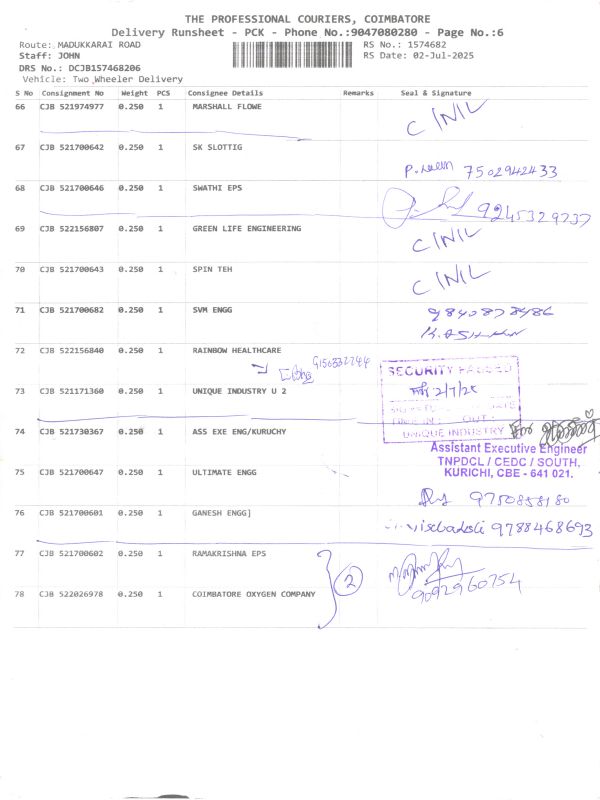 THE PROFESSIONAL COURIERS, COIMBATORE
Delivery Runsheet - PCK - Phone No.:9047080280 - Page No.:6
Route: MADUKKARAI ROAD RS No.: 1574682
Staff: JOHN RS Date: 02-Jul-2025
DRS No.: DCJB157468206
Vehicle: Two Wheeler Delivery
S No Consignment No Weight PCS Consignee Details Remarks Seal & Signature
66 CJB 521974977 0.250 1 MARSHALL FLOWE
C/NIL
67 CJB 521700642 0.250 1 SK SLOTTIG
7502942433
68 CJB 521700646 0.250 1 SWATHI EPS
9245329737
69 CJB 522156807 0.250 1 GREEN LIFE ENGINEERING
C/NIL
70 CJB 521700643 0.250 1 SPIN TEH
C/NIL
71 CJB 521700682 0.250 1 SVM ENGG
72 CJB 522156840 0.250 1 RAINBOW HEALTHCARE
SECURITY PASSED
73 CJB 521171360 0.250 1 UNIQUE INDUSTRY U 2
2/7/25
OUT:
UNIQUE INDUSTRY
74 CJB 521730367 0.250 1 ASS EXE ENG/KURUCHY
For
Assistant Executive Engineer
TNPDCL / CEDC / SOUTH.
KURICHI, CBE - 641 021.
75 CJB 521700647 0.250 1 ULTIMATE ENGG
9750858180
76 CJB 521700601 0.250 1 GANESH ENGG]
9788468693
77 CJB 521700602 0.250 1 RAMAKRISHNA EPS
2
9092960754
78 CJB 522026978 0.250 1 COIMBATORE OXYGEN COMPANY